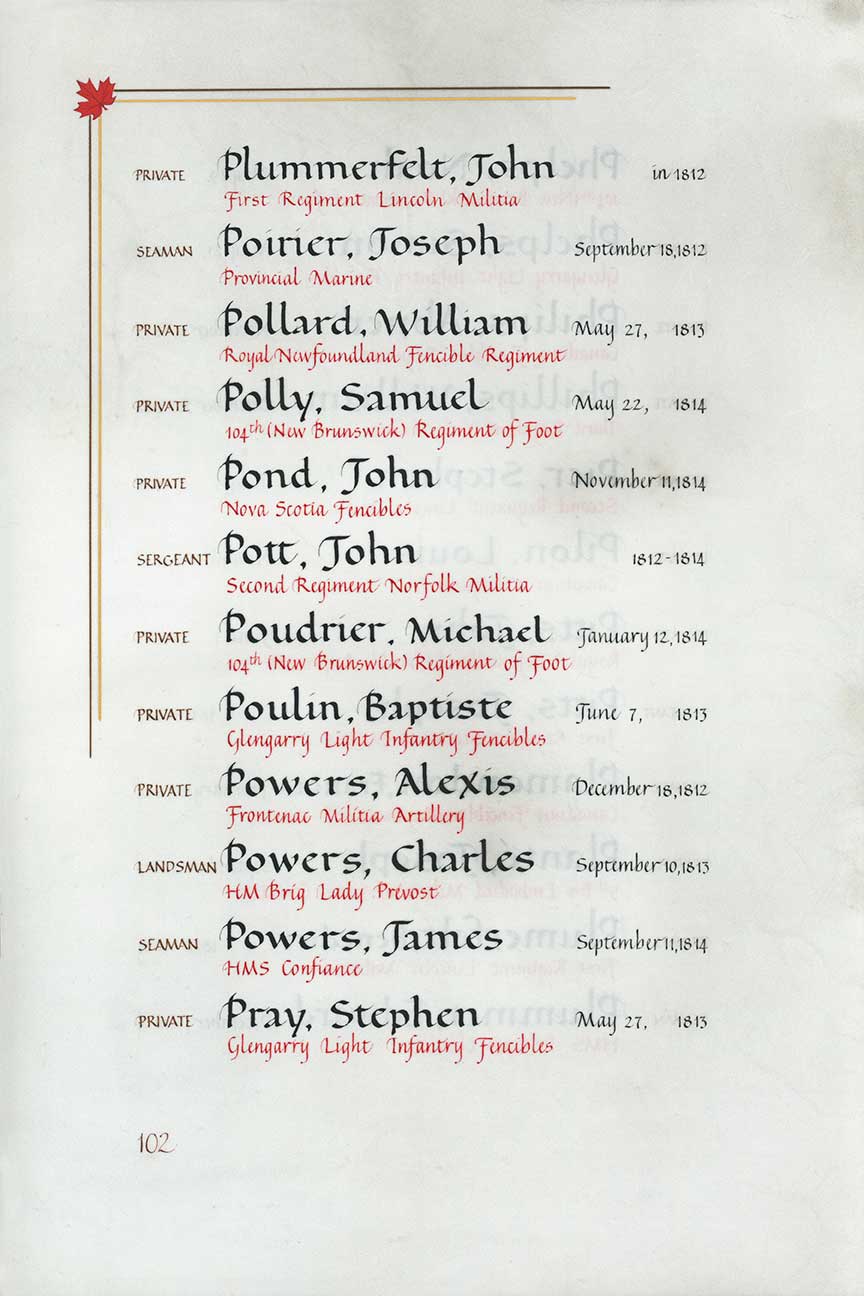 PRIVATE Plummerfelt, John in 1812
First Regiment Lincoln Militia
SEAMAN Poirier, Joseph September 18, 1812
Provincial Marine
PRIVATE Pollard, William May 27, 1813
Royal Newfoundland Fencible Regiment
PRIVATE Polly, Samuel May 22, 1814
104th (New Brunswick) Regiment of Foot
PRIVATE Pond, John November 11, 1814
Nova Scotia Fencibles
SERGEANT Pott, John 1812-1814
Second Regiment Norfolk Militia
PRIVATE Poudrier, Michael January 12, 1814
104th (New Brunswick) Regiment of Foot
PRIVATE Poulin, Baptiste June 7, 1813
Glengarry Light Infantry Fencibles
PRIVATE Powers, Alexis December 18, 1812
Frontenac Militia Artillery
LANDSMAN Powers, Charles September 10, 1813
HM Brig Lady Prevost
SEAMAN Powers, James September 11, 1814
HMS Confiance
PRIVATE Pray, Stephen May 27, 1813
Glengarry Light Infantry Fencibles
102